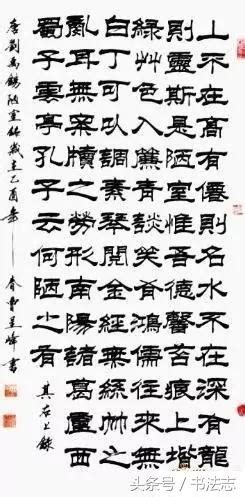 山不在高有僊則名水不在深有龍
則靈斯是陋室惟吾德馨苔痕上堦
綠艸色入簾青談笑有鴻儒往來無
白丁可以調素琴閱金經無絲竹之
亂耳無案牘之勞形南陽諸葛廬西
蜀子雲亭孔子云何陋之有
唐劉禹錫陋室銘歲乙酉春曹星峰書
头条号 / 书法志